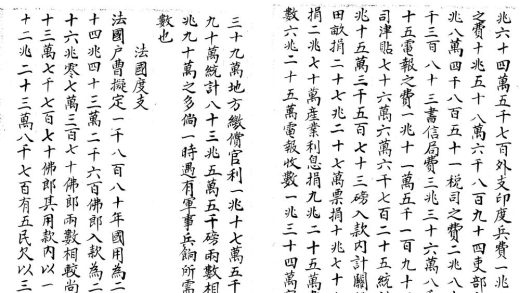 兆六十四萬五千七百外支印度兵費一兆
之費十兆五十八萬六千八百九十四吏部
兆八萬四千八百五十一税司之費二兆八
千三百八十三書信局費三兆三十六萬八
十五電報之費一兆十一萬五千一百九十
司津貼七十六萬六萬六千七百二十五統
兆十五萬三千五百七十三磅入款内計關
田畝捐二十七兆二十七萬票捐十兆七十
捐二兆七十萬產業利息捐九兆二十五萬
數六兆二十五萬電報收數一兆三十四萬
三十九萬地方繳償官利一兆十七萬五千
九十萬統計八十三兆五萬五千磅兩數相
兆九十萬之多倘一時遇有軍事兵餉所需
數也
法國度支
法國戶曹擬定一千八百八十年國用為二
十四兆四十三萬二千六百佛郎入款為二
十六兆零七萬三百七十佛郎兩數相較尚
十三萬七千七百七十佛郎其用款內以一
十二兆二十三萬八千七百有五民欠以三